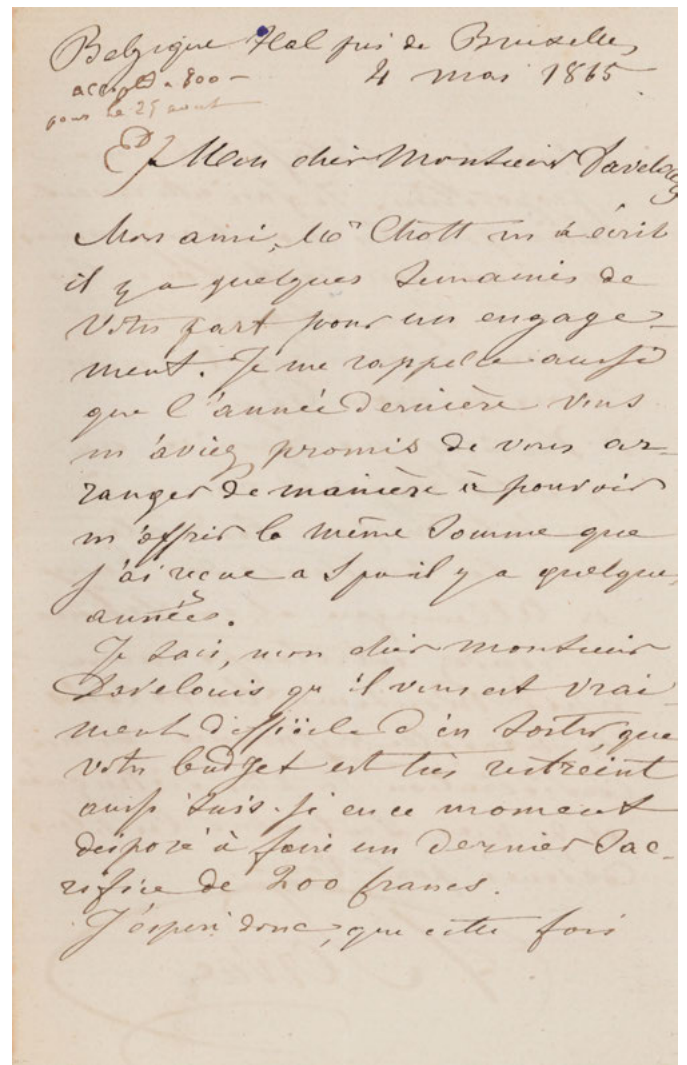 Belgique Hal près de Bruxelles
4 mai 1865
accepté a 800 –
pour le 25 aout
Mon cher Monsieur Davelouis
Mon ami, Mr Chott m'a écrit
il y a quelques semaines de
votre part pour un engage-
ment. Je me rappelle aussi
que l'année dernière vous
m'aviez promis de vous ar-
ranger de manière à pouvoir
m'offrir la même somme que
j'ai reçue a Spa il y a quelques
années.
Je sais, mon cher monsieur
Davelouis qu'il vous est vrai-
ment difficile d'en sortir que
votre budget est très restreint
aussi suis-je en ce moment
disposé à faire un dernier sac-
rifice de 200 francs.
J'espère donc, que cette fois